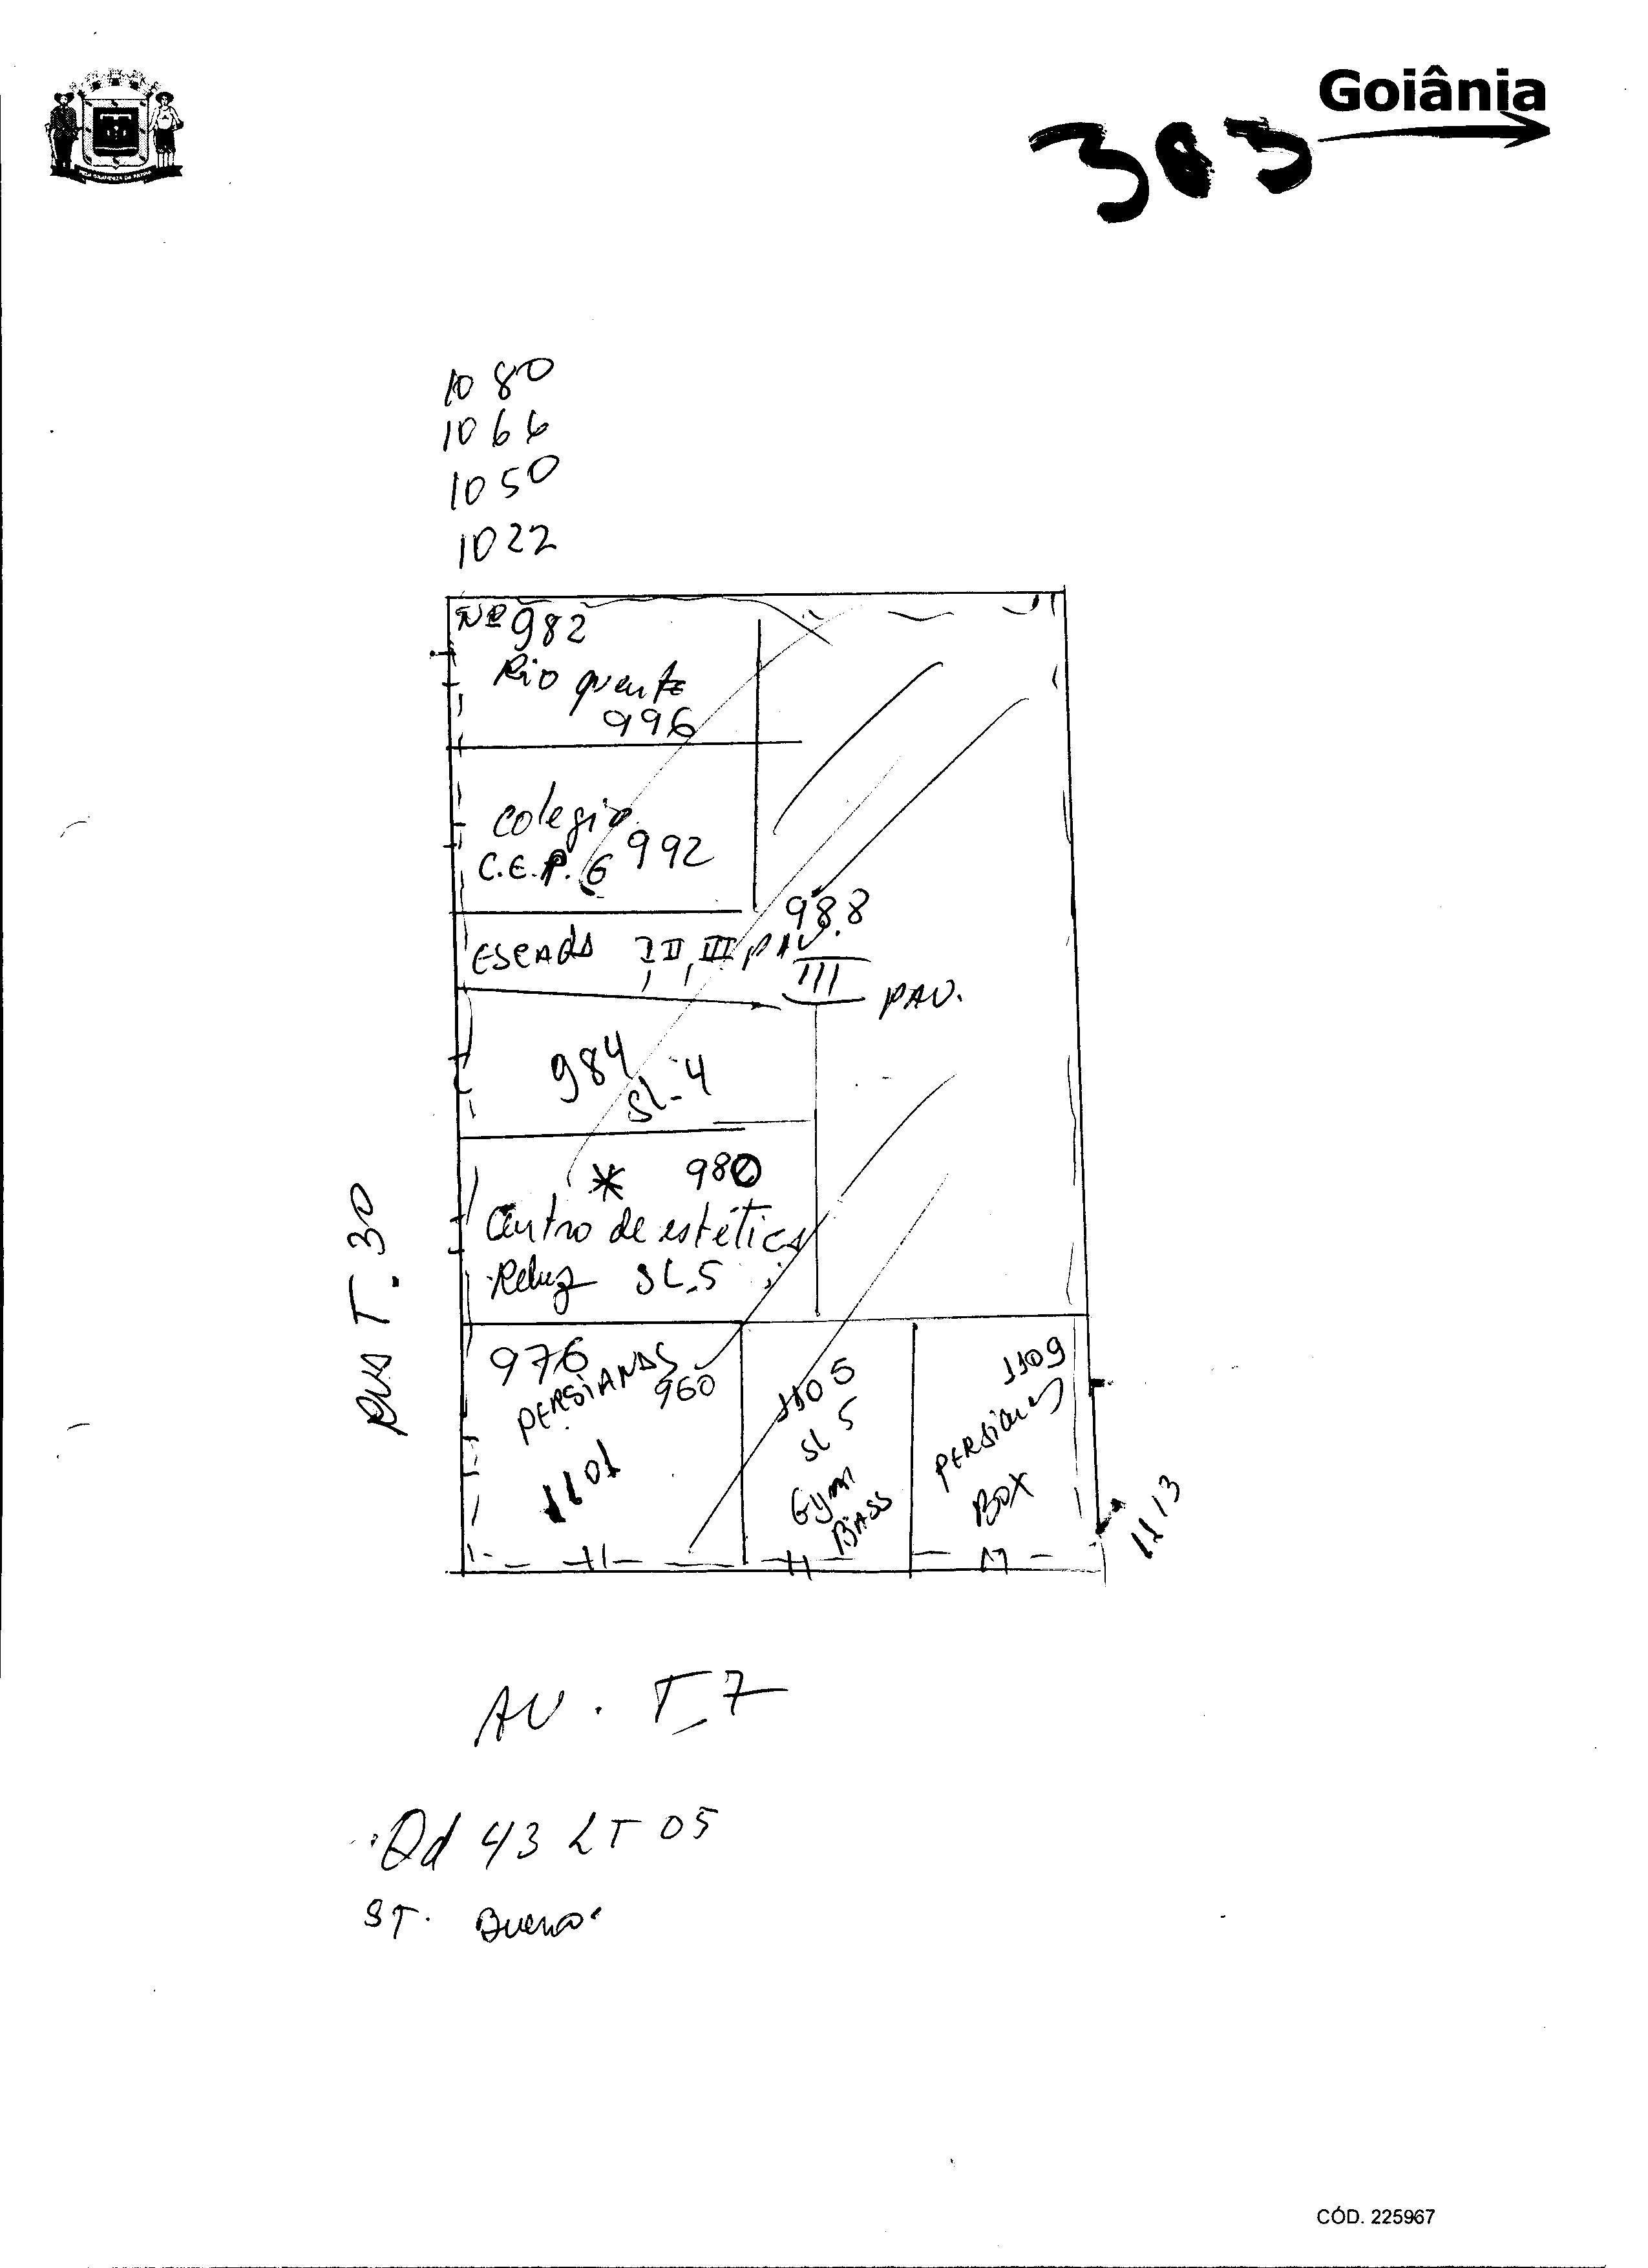 Goiânia
303
1080
1066
1050
1022
Nº 982
Rio quente
996
colegio
C.E.P. 6 992
988
ESCADA I, II, III PAV.
III PAV.
984
SL-4
* 980
Centro de estética
Reluz SL.5
RUA T-30
976
PERSIANAS
960
1101
1105
SL 5
Gym
BiASS
1109
PERSianas
BOX
1113
AV. T-7
Qd 43 LT 05
ST. Bueno
CÓD. 225967